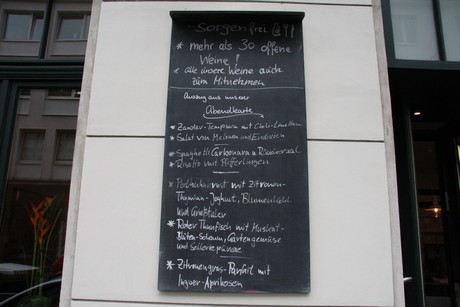 Sorgenfrei
* mehr als 30 offene
Weine!
* alle unsere Weine auch
zum Mitnehmen
Auszug aus unserer
Abendkarte
* Zander-Tempura mit Chili-
* Salat von Melonen und
* Spaghetti Carbonara
* Risotto mit Pfifferlingen
* Perlhuhn mit Zitronen-
Thymian-Joghurt, Blumenkohl
und
* Roter Thunfisch mit Muskat-
Blüten-Schaum, Gartengemüse
und Selleriepüree
* Zitronengras-Parfait mit
Ingwer-Aprikosen